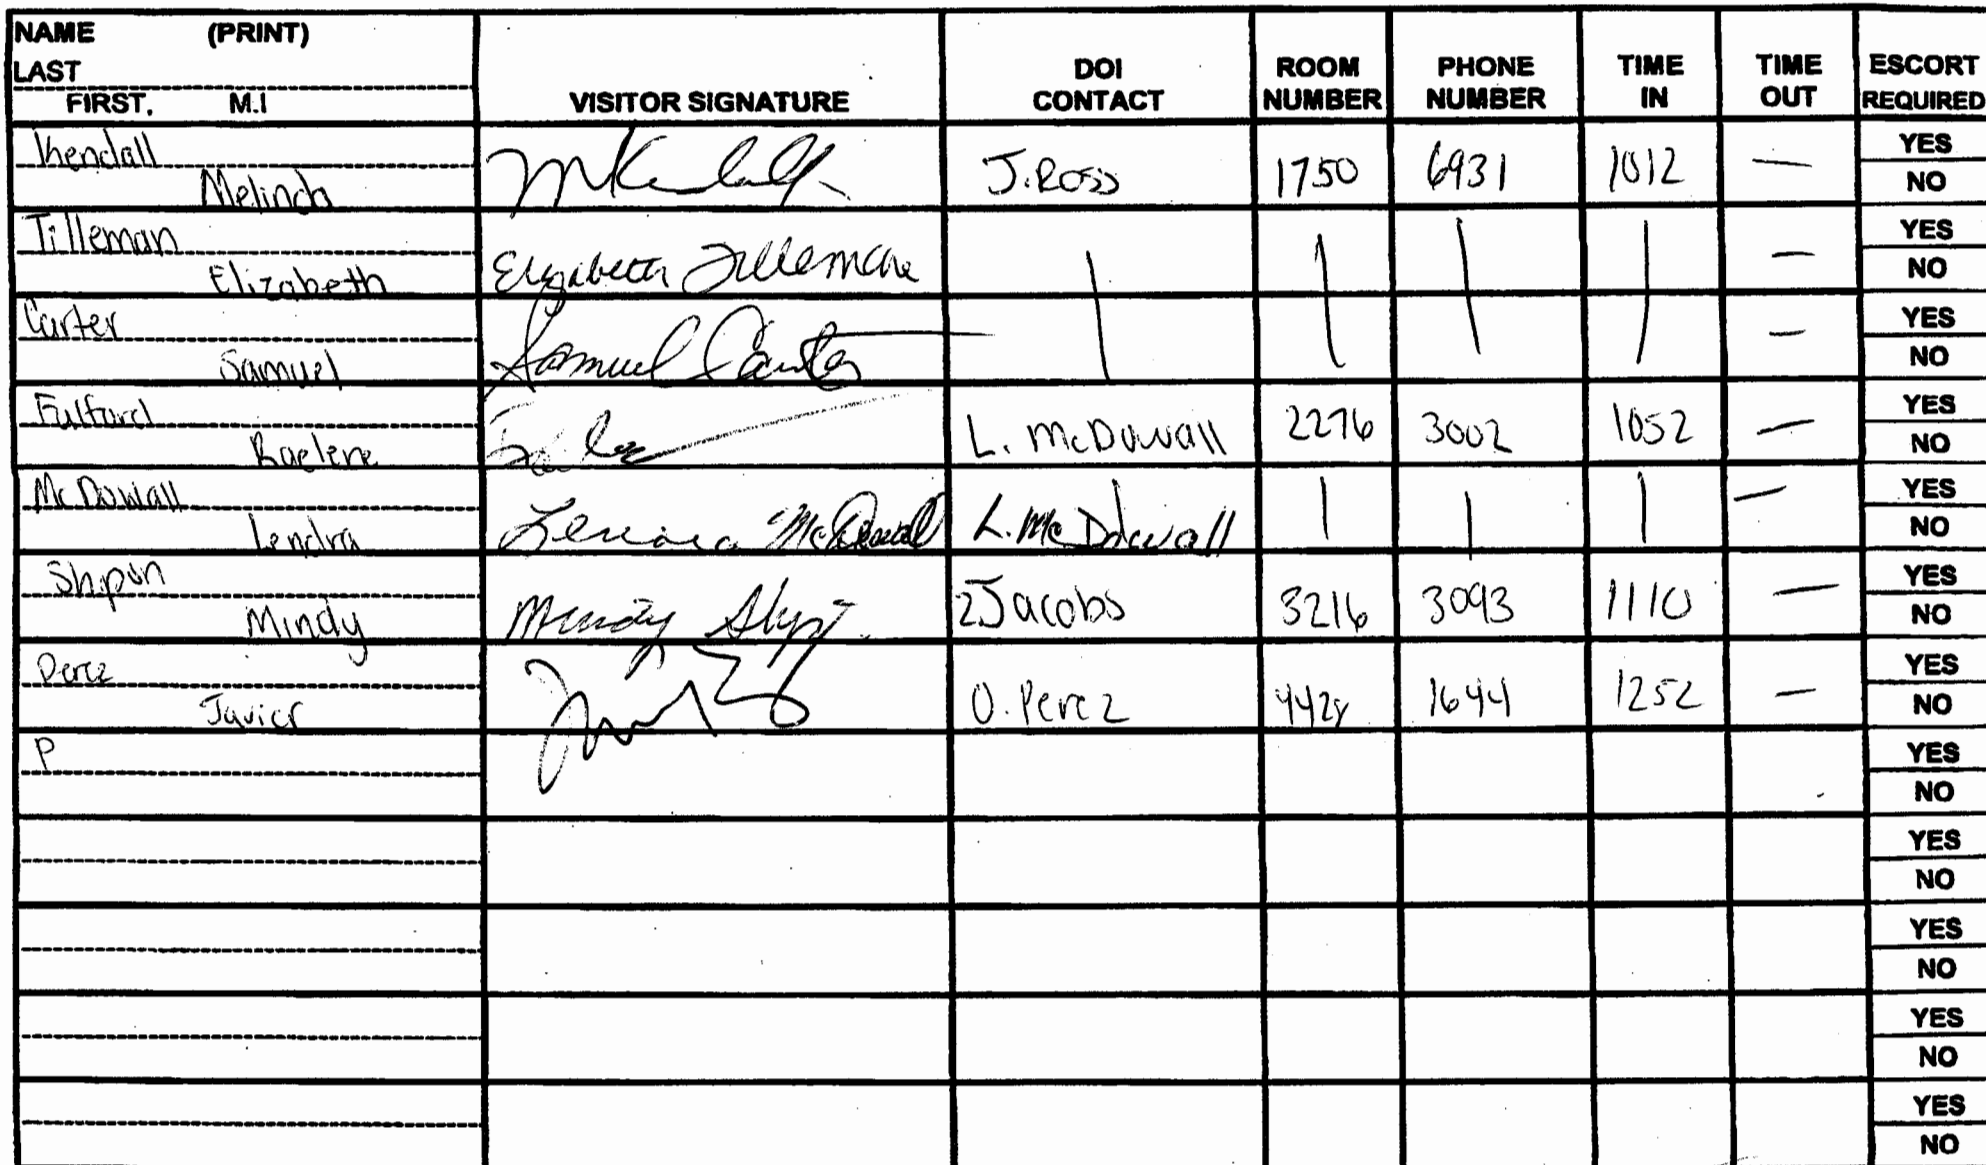 NAME (PRINT)
LAST
FIRST, M.I
VISITOR SIGNATURE
DOI CONTACT
ROOM NUMBER
PHONE NUMBER
TIME IN
TIME OUT
ESCORT REQUIRED
Kendall
Melinda
MKendall
J. Ross 1750 6931 1012 —
YES
NO
Tilleman
Elizabeth
Elizabeth Tilleman
| | | | —
YES
NO
Carter
Samuel
Samuel Carter
—
YES
NO
Fulford
Raelene
L. McDowall 2276 3002 1052 —
YES
NO
McDowall
Lendra
Lendra McDowall
L. McDowall | | | —
YES
NO
Shipon
Mindy
Mindy
Jacobs 3216 3093 1110 —
YES
NO
Perez
Javier
O. Perez 4428 1644 1252 —
YES
NO
P
YES
NO
YES
NO
YES
NO
YES
NO
YES
NO